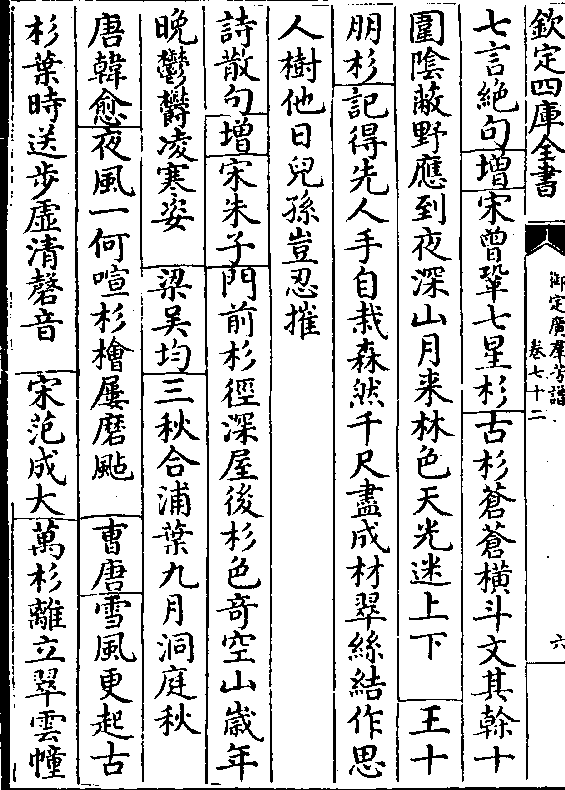 欽定四庫全書
御定廣羣芳譜
卷七十二
六
七言絶句增宋曾鞏七星杉古杉蒼蒼橫斗文其榦十
圍陰蔽野應到夜深山月来林色天光迷上下 王十
朋杉記得先人手自栽森然千尺盡成材翠絲結作思
人樹他日兒孫豈忍摧
詩散句增宋朱子門前杉徑深屋後杉色奇空山歲年
晚鬱欝凌寒姿 梁吴均三秋合浦葉九月洞庭秋
唐韓愈夜風一何喧杉檜屢磨颭 曹唐雪風更起古
杉葉時送步虛清磬音 宋范成大萬杉離立翠雲幢